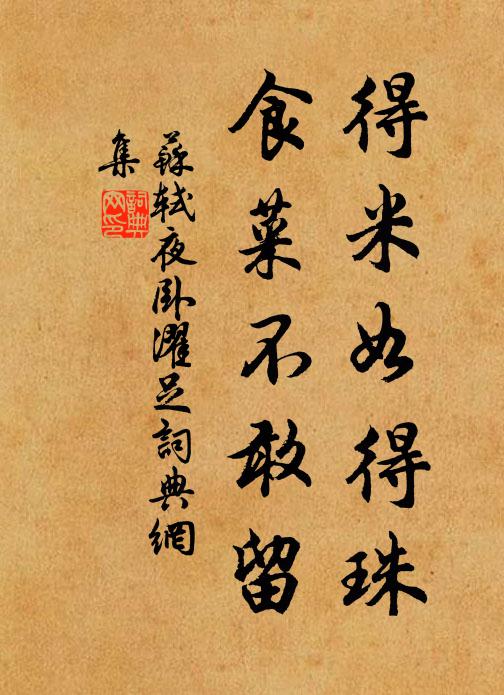 得米如得珠
食菜不敢留
蘇軾夜卧濯足詞典網
集
詞典
网印